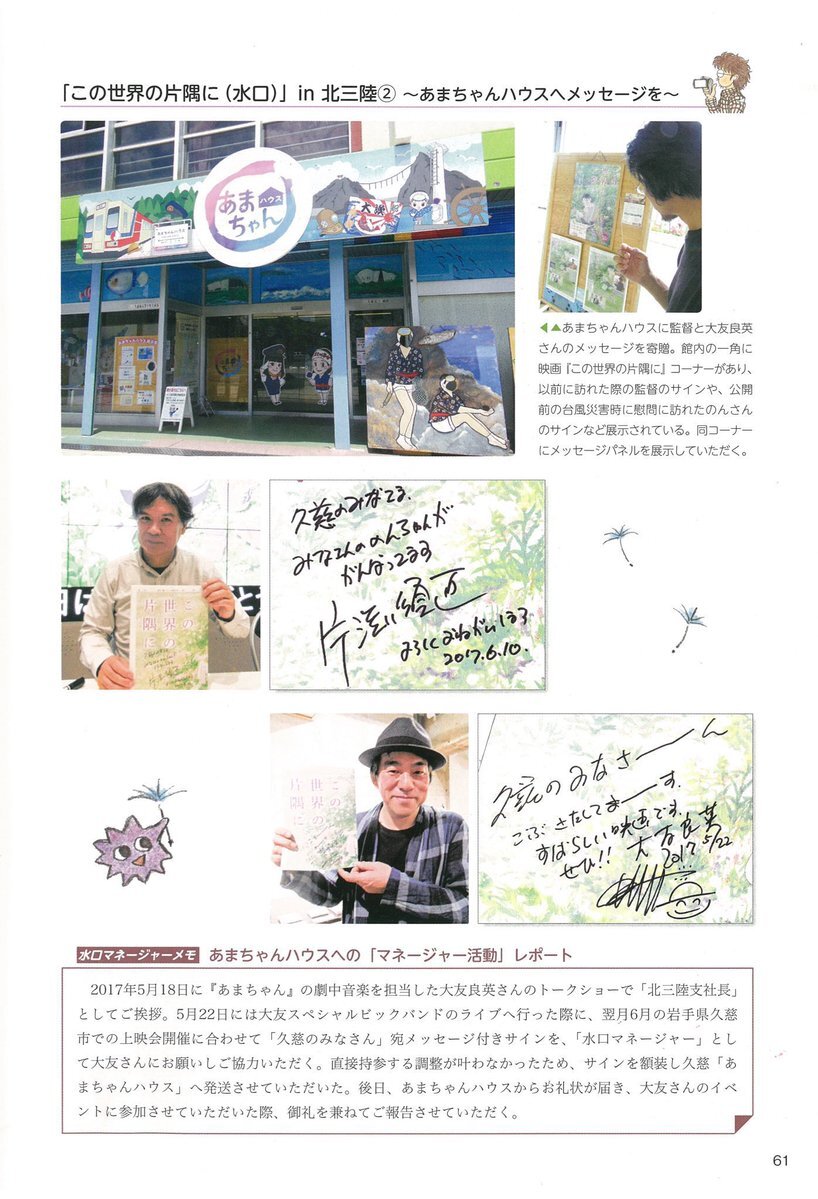 「この世界の片隅に（水口）」in 北三陸② ～あまちゃんハウスへメッセージを～
あま
ハウス
ちゃん
大漁
◀▲あまちゃんハウスに監督と大友良英
さんのメッセージを寄贈。館内の一角に
映画『この世界の片隅に』コーナーがあり、
以前に訪れた際の監督のサインや、公開
前の台風災害時に慰問に訪れたのんさん
のサインなど展示されている。同コーナー
にメッセージパネルを展示していただく。
この
世界の
片隅に
久慈のみなさま
みなさんののんちゃんが
がんばってます
片渕須直
よろしくおねがいします
2017.6.10.
この
世界の
片隅に
久慈のみなさーーん
ごぶさたしてまーーす.
すばらしい映画です.
ぜひ!! 大友良英
2017 5/22
水口マネージャーメモ あまちゃんハウスへの「マネージャー活動」レポート
2017年5月18日に『あまちゃん』の劇中音楽を担当した大友良英さんのトークショーで「北三陸支社長」
としてご挨拶。5月22日には大友スペシャルビックバンドのライブへ行った際に、翌月6月の岩手県久慈
市での上映会開催に合わせて「久慈のみなさん」宛メッセージ付きサインを、「水口マネージャー」とし
て大友さんにお願いしご協力いただく。直接持参する調整が叶わなかったため、サインを額装し久慈「あ
まちゃんハウス」へ発送させていただいた。後日、あまちゃんハウスからお礼状が届き、大友さんのイベ
ントに参加させていただいた際、御礼を兼ねてご報告させていただく。
61